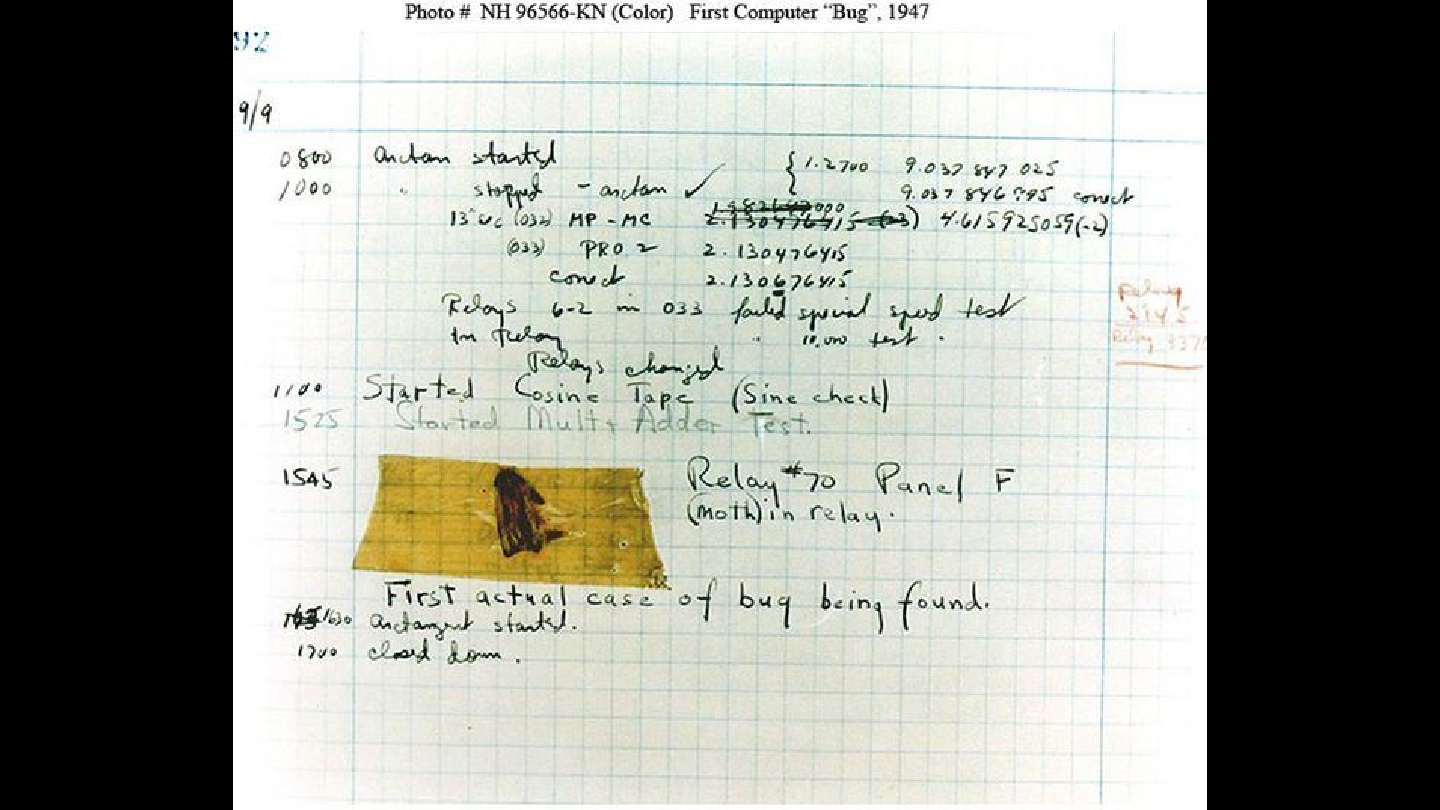 Photo # NH 96566-KN (Color) First Computer “Bug”, 1947
92
9/9
0800 Antan started
1000 " stopped - antan ✓ { 1.2700 9.037 847 025
9.037 846 995 correct
13" uc (032) MP - MC 4.615925059(-2)
(033) PRO 2 2.130476415
correct 2.130676415
Relays 6-2 in 033 failed special speed test
In relay " 10.000 test .
Relays changed
1100 Started Cosine Tape (Sine check)
1525 Started Mult + Adder Test.
1545 Relay #70 Panel F
(moth) in relay.
First actual case of bug being found.
1630 antangent started.
1700 closed down.
Relay
2145
Relay 3370